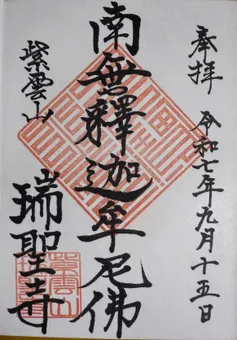 奉拝 令和七年九月十五日
南無釋迦牟尼佛
紫雲山
瑞聖寺